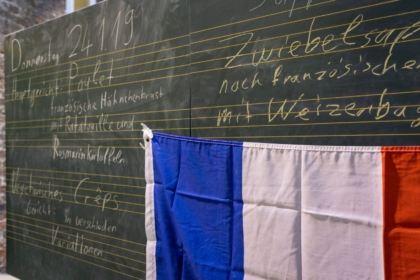 Donnerstag 24.1.19
Hauptgericht: Poulet
französische Hähnchenbrust
mit Ratatouille und
Rosmarinkartoffeln
Vegetarisches Crêps
Gericht: in verschieden
Variationen
Zwiebelsup
nach französischer
mit Weizenbag